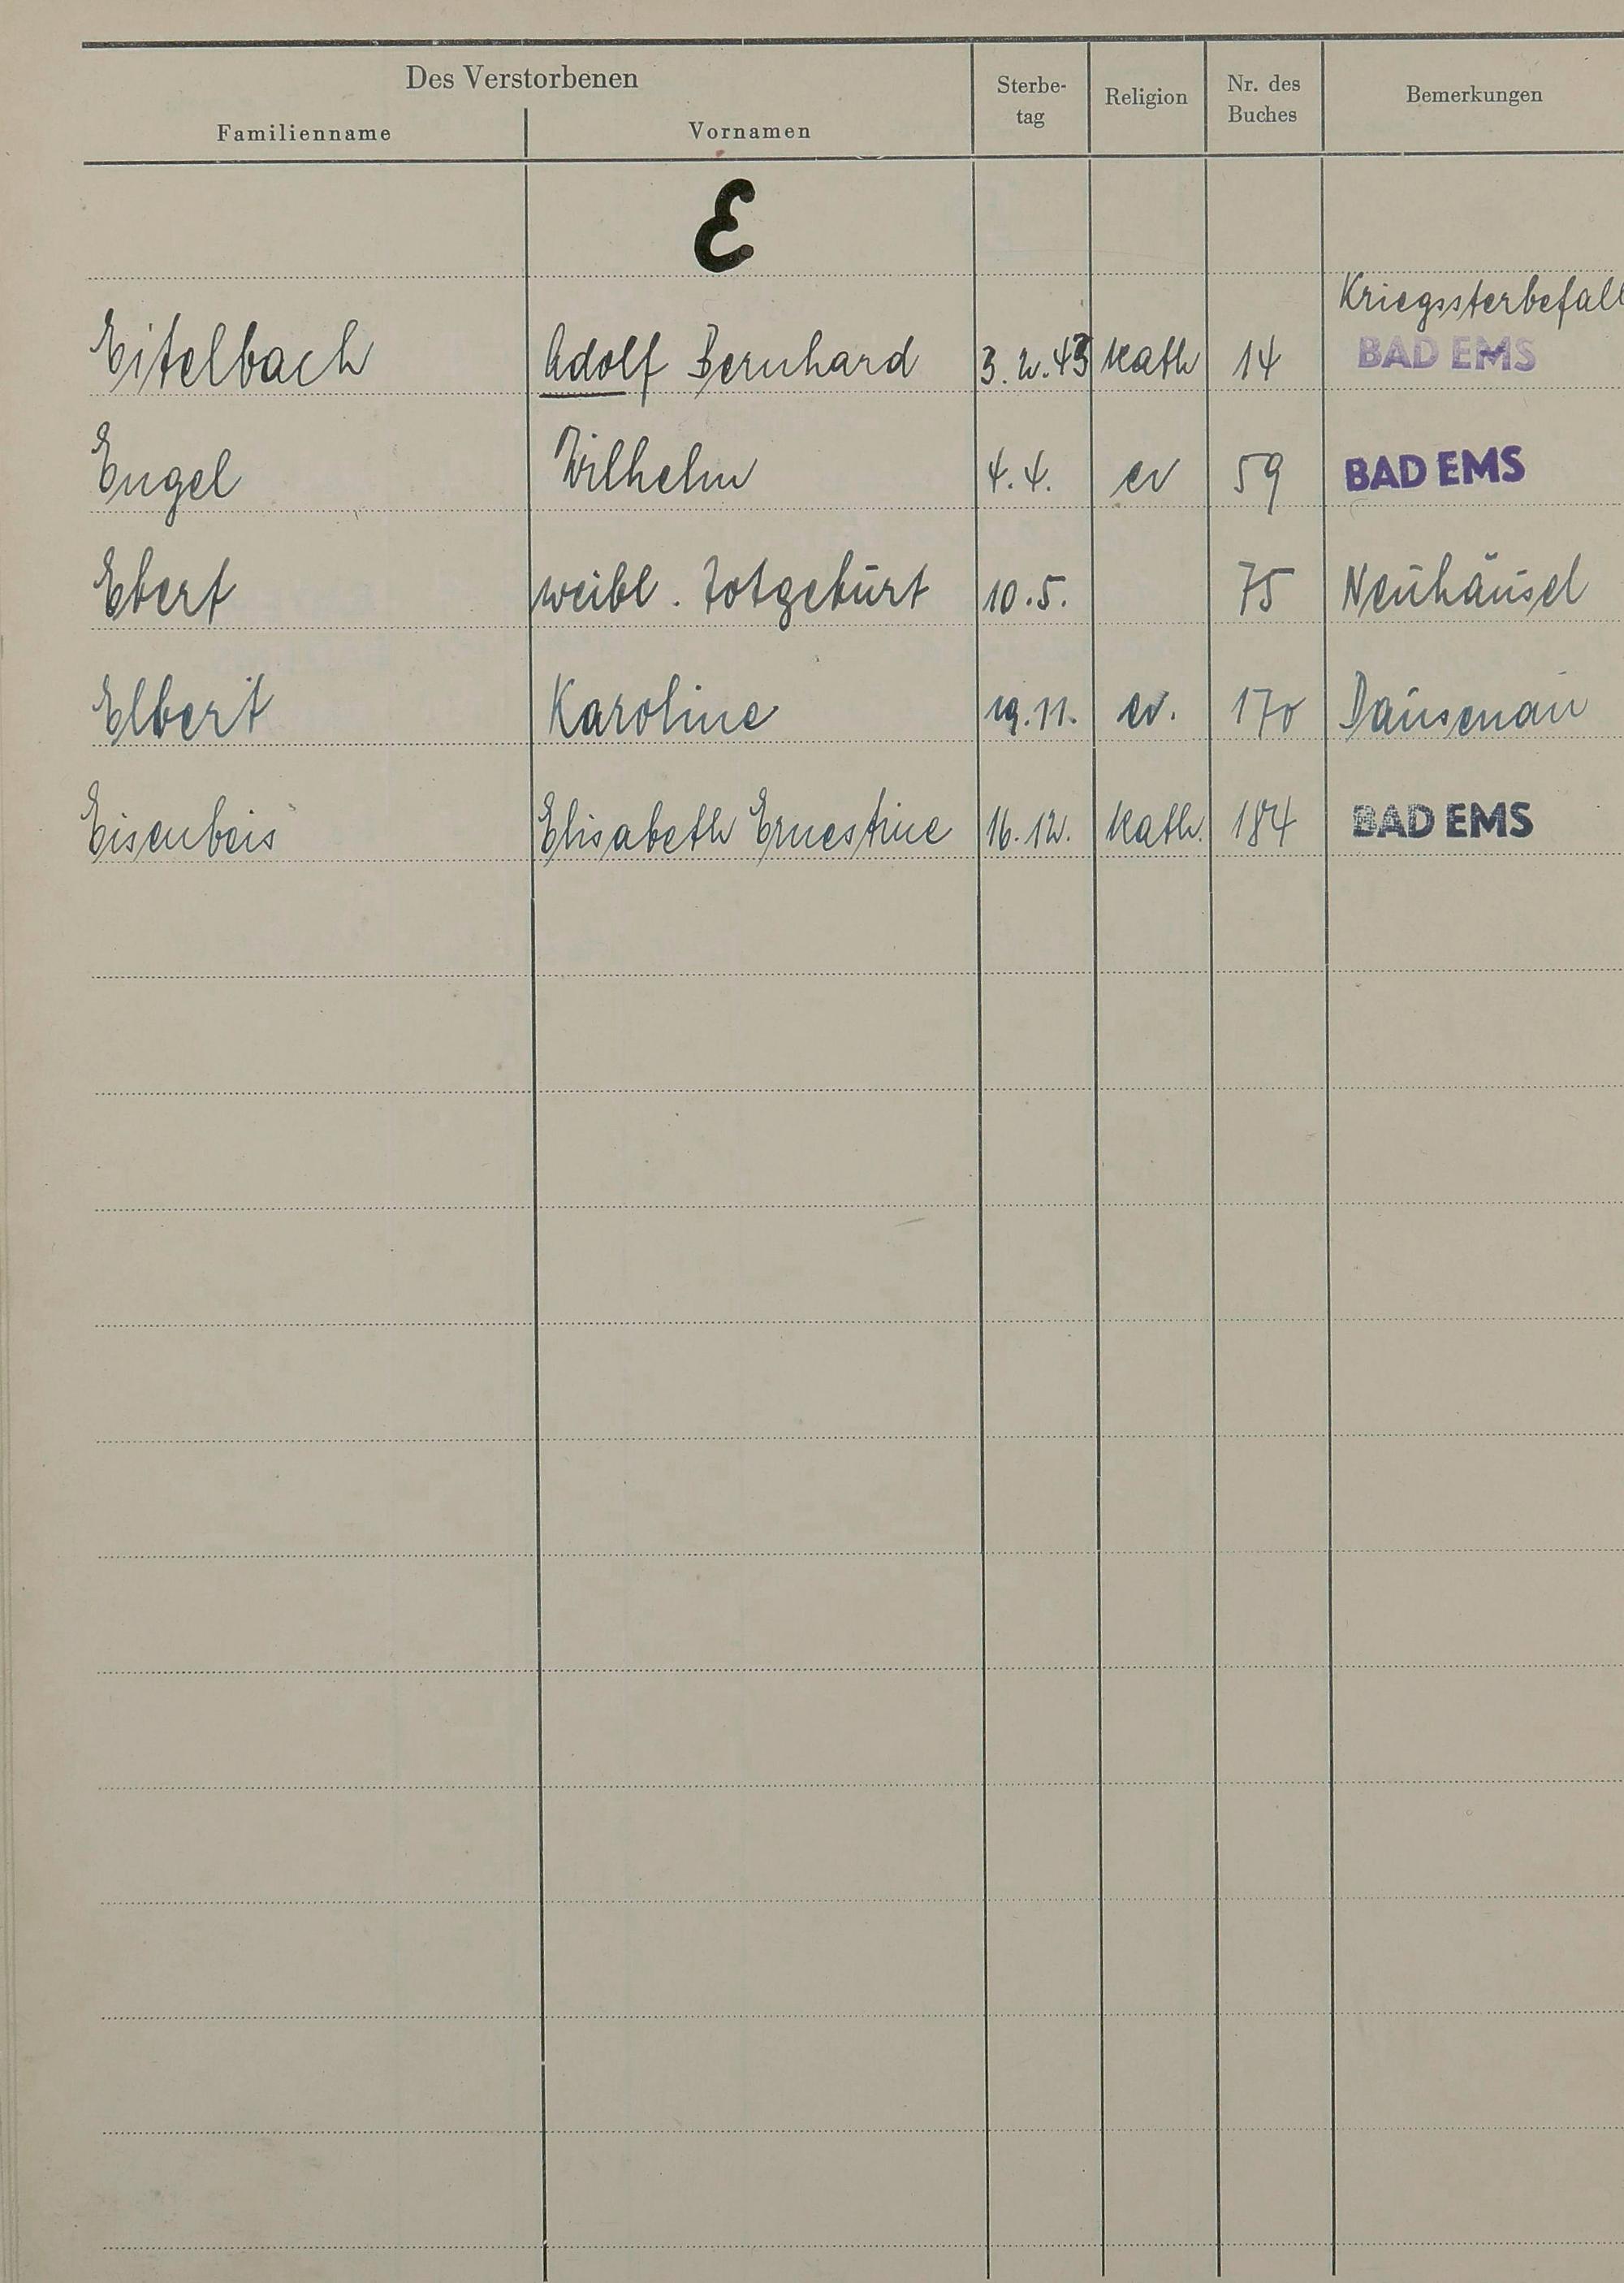 Des Verstorbenen
Familienname Vornamen Sterbe- tag Religion Nr. des Buches Bemerkungen
E
Kriegssterbefall
Eitelbach Adolf Bernhard 3.2.43 Kath 14 BAD EMS
Engel Wilhelm 4.4. ev 59 BAD EMS
Ebert weibl. Totgeburt 10.5. 75 Neuhäusel
Elbert Karoline 19.11. ev. 170 Dausenau
Eisenbeis Elisabeth Ernestine 16.12. Kath. 184 BAD EMS